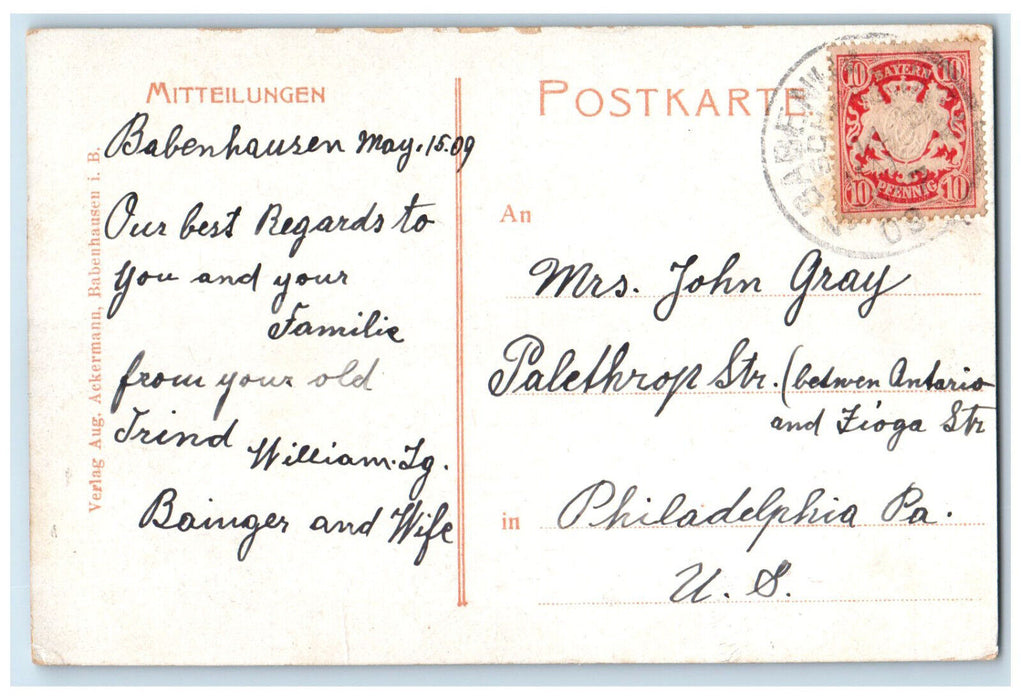 MITTEILUNGEN
Babenhausen May. 15.09
Our best Regards to
you and your
Familie
from your old
Trind
William. Ig.
Bainger and Wife
Verlag Aug. Ackermann, Babenhausen i. B.
POSTKARTE
BAYERN
10 10
10 PFENNIG 10
09
An
Mrs. John Gray
Palethrop Str. (betwen Antario
and Tioga Str
in Philadelphia Pa.
U. S.